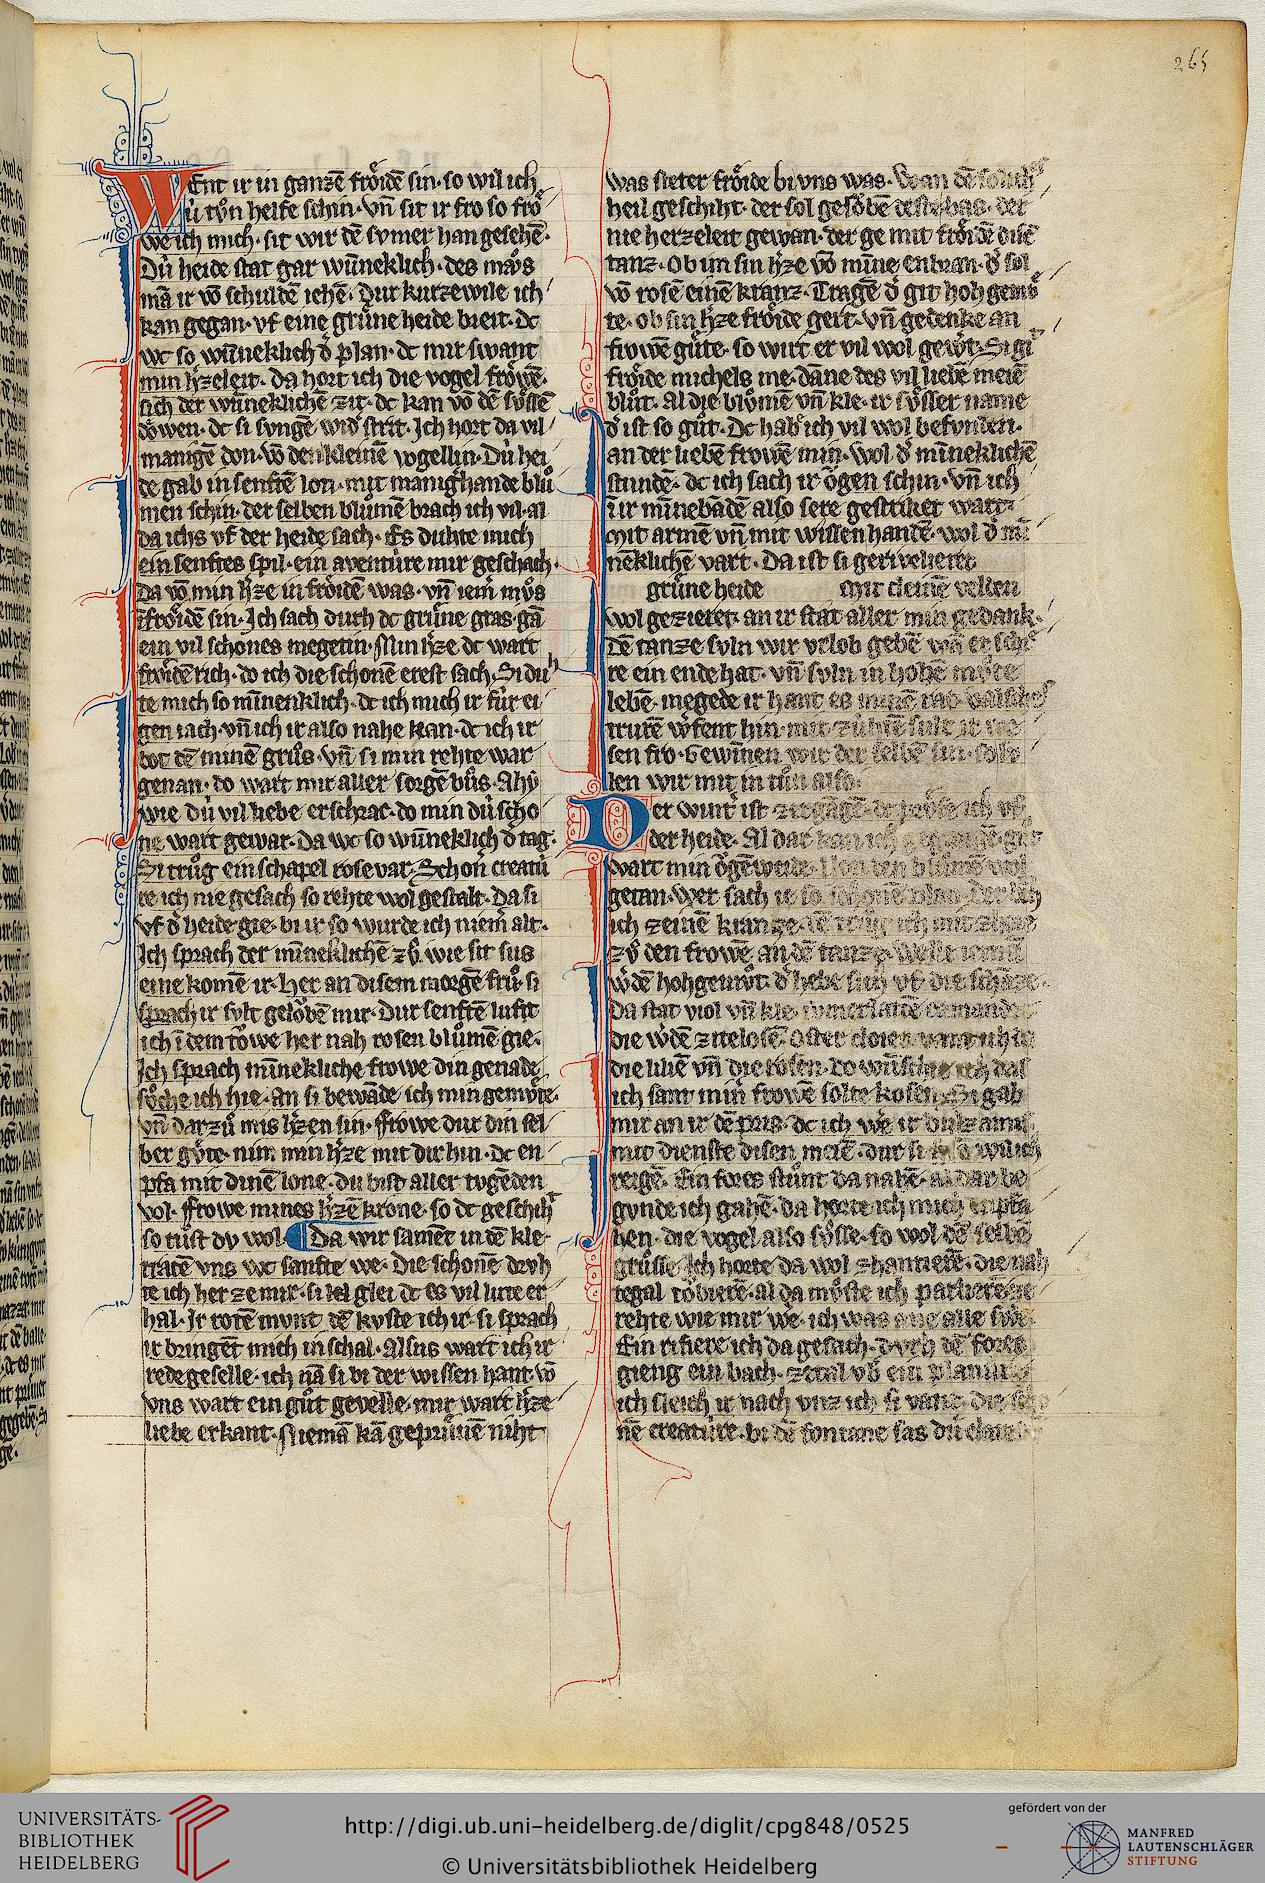 265
WEnt ir in ganzē frͦidē sin· so wil ich
ù tv̊n helfe schin· vn̄ sit ir fro so frͦ
we ich mich· sit wir dē svmer han gesehē·
Dù heide stat gar wùneklich· des mā
mā ir vō schuldē iehē· Dur kurzewile ich
kan gegan· vf eine grùne heide breit· dc
wc so wùneklich d̓ plan· dc mir swant
min h̓zeleit· da hort ich die vogel frͦwē·
sich der wùneklichē zit· dc kan vō dē sùssē
dͦwen· dc si svngē wid̓ strit· Ich hort da vil
manigē don· vō den kleinē vogellin· Dù hei
de gab in senftē lon· mit manigh̓hande blů
men schin· der selben blůmē brach ich vil· al
da ichs vf der heide sach· Es duhte mich
ein senftes spil· ein aventùre mir geschach·
Da vō min h̓ze in frͦidē was· vn̄ iem̄
ī frͦidē sin· Ich sach durch dc grùne gras gā
ein vil schones megetin· Min h̓ze dc wart
frͦidē rich· do ich die schonē erest sach· Si duh
te mich so mīnenklich· dc ich mich ir fùr ei
gen iach· vn̄ ich ir also nahe kan· dc ich ir
bot dē minē grůs· vn̄ si min rehte war
genan· do wart mir aller sorgē bůs· Ahy
wie dù vil liebe erschrac· do min dù scho
ne wart gewar· Da wc so wùneklich d̓ tag·
Si trůg ein schapel rosevar· Schoñ creatù
re ich nie gesach so rehte wol gestalt· Da si
vf d̓ heide gie· bi ir so wurde ich niem̄ alt·
Ich sprach der mīneklichē zů· wie sit sus
eine komē ir· Her an disem morgē frů· si
sprach ir svlt gelͦbē mir· Dur senftē luft
ich ī dem tͦwe her nah rosen blůmē gie·
Ich sprach mīnekliche frowe din genade
sͦche ich hie· an si bewāde ich min gemv̊te·
vn̄ dar zů mis h̓zen sin· Frowe dur din sel
ber gv̊te· nim min h̓ze mit dir hin· dc en
pfa mit dinē lone· du bist aller tvgēden
vol· Frowe mines h̓zē krone· so dc geschih̓
so tůst dv wol· Da wir samēt in dē kle·
tratē vns wc sanfte we· Die schonē drvh
te ich her ze mir· si kel glei dc es vil lute er
hal· Ir rotē mvnt dē kvste ich ir· si sprach
ir bringēt mich in schal· Alsus wart ich ir
rede geselle· ich nā si bi der wissen hant· vō
vns wart ein gůt gevelle· mir wart h̓ze
liebe erkant· Niemā kā geprùuē niht
was steter frͦide bi vns was· Swan dē
heil geschiht· der sol gelͦbē deste bas· der
nie herzeleit gewan· der ge mit frͦidē disē
tanz· Ob im sin h̓ze vō mīne enbran· d̓ sol
vō rosē einē kranz· Tragē d̓ git hoh gemů
te· ob sin h̓ze frͦide gert· vn̄ gedenke an
frowē gůte· so wirt er vil wol gew̓t· Si git
frͦide michels me· dāne des vil liebē meiē
blůt· Al die blůmē vn̄ kle· ir sùsser name
d̓ ist so gůt· Dc hab ich vil wol befvnden·
an der liebē frowē min· wol d̓ mīneklichē
stundē· dc ich sach ir ͦgen schin· vn̄ ich
ī ir mīnebādē also sere gestriket wart·
Mit armē vn̄ mit wissen handē· wol d̓ mī
neklichē vart· Da ist si geriveliert
grùne heide mit cleinē vellen
wol gezieret· an ir stat aller min gedank·
Dē tanze svln wir vrlob gebē wā er schi
re ein ende hat· vn̄ svln in hohē můte
lebē· megede ir hant es minē rat· valsches
trurē w̓fent hin· mit zùhtē sult ir we
sen fro· Gewīnen wir der selbē sin· so
len wir mit in tůn also·
Der wint̓ ist zergāgē· dc prͦfe ich vf
der heide· Al dar kan ich gegangē· gůt
wart min ͦgēweide· Von den blůmē wol
getan· wer sach ie so schonē plan· der brich
ich zeinē kranze· dē trůg ich mit zhoie
zů den frowē an dē tanze· welle iemā
w̓dē hohgemůt· d̓ hebe sich vf die schāze·
Da stat viol vn̄ kle· svmerlatē camandre
die w̓dē zitelosē· Oster cloien vant ich da
die lilie vn̄ die rosen· do wùnschte ich das
ich sant min̄ frowē solte kosen· Si gab
mir an ir dē pris· dc ich w̓e ir dulz amis·
mit dienste disen meiē· dur si so wil ich
reigē· Ein fores stůnt da nahē· al dar be
gvnde ich gahē· da horte ich mich enpfa
hen· die vogel also sùsse· so wol dē selbē
grůsse· Ich horte da wol zhantierē· die nah
tegal tͦbierē· al da můste ich parlierē ze
rehte wie mir we̓· ich was ane alle swe̓·
Ein rifiere ich da gesach· dvrh dē fores
gieng ein bach· zetal vb̓ ein planùre·
ich sleich ir nach vnz ich si vant· die scho
nē creatùre· bi dē fontane sas dù clare
UNIVERSITÄTS-
BIBLIOTHEK
HEIDELBERG
http://digi.ub.uni-heidelberg.de/diglit/cpg848/0525
© Universitätsbibliothek Heidelberg
gefördert von der
MANFRED
LAUTENSCHLÄGER
STIFTUNG